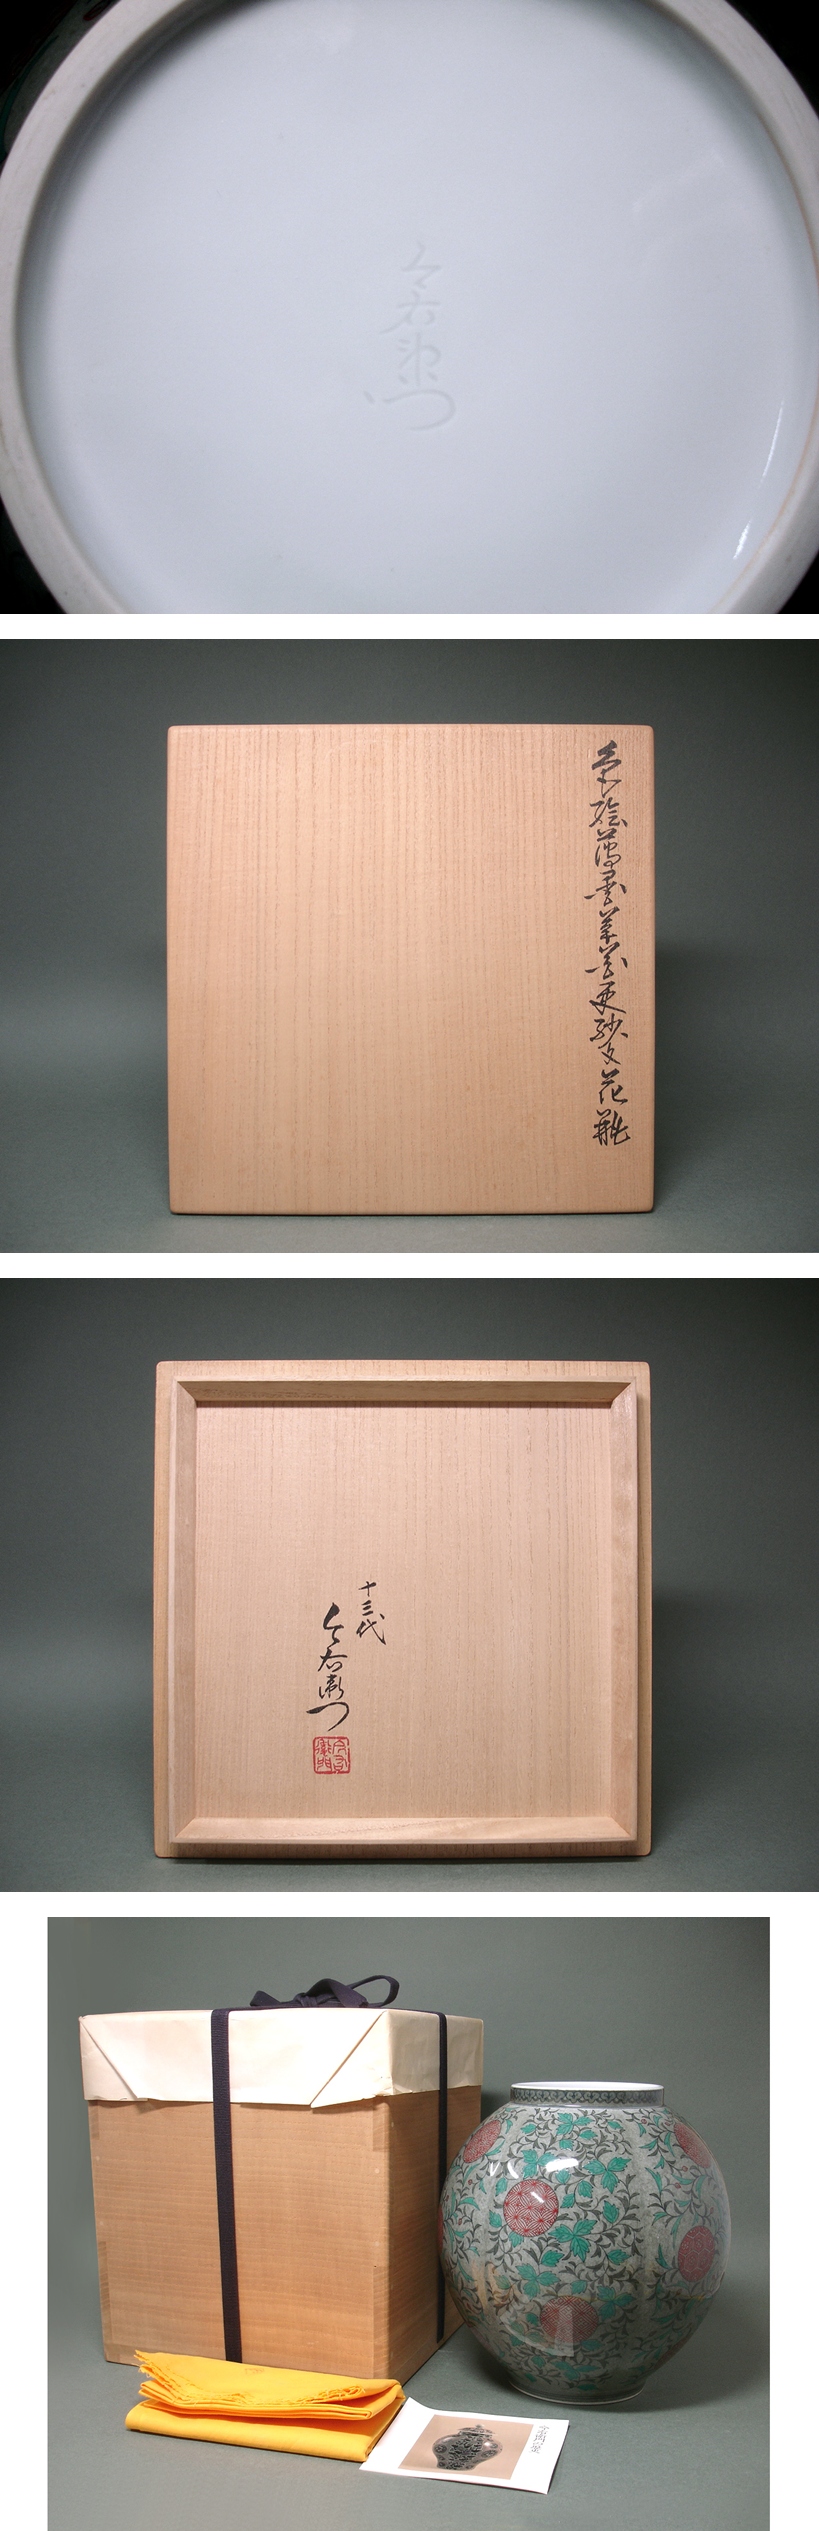 今右衛门
色絵薄墨草花更紗文花瓶
十三代
今右衛门
今右衛門